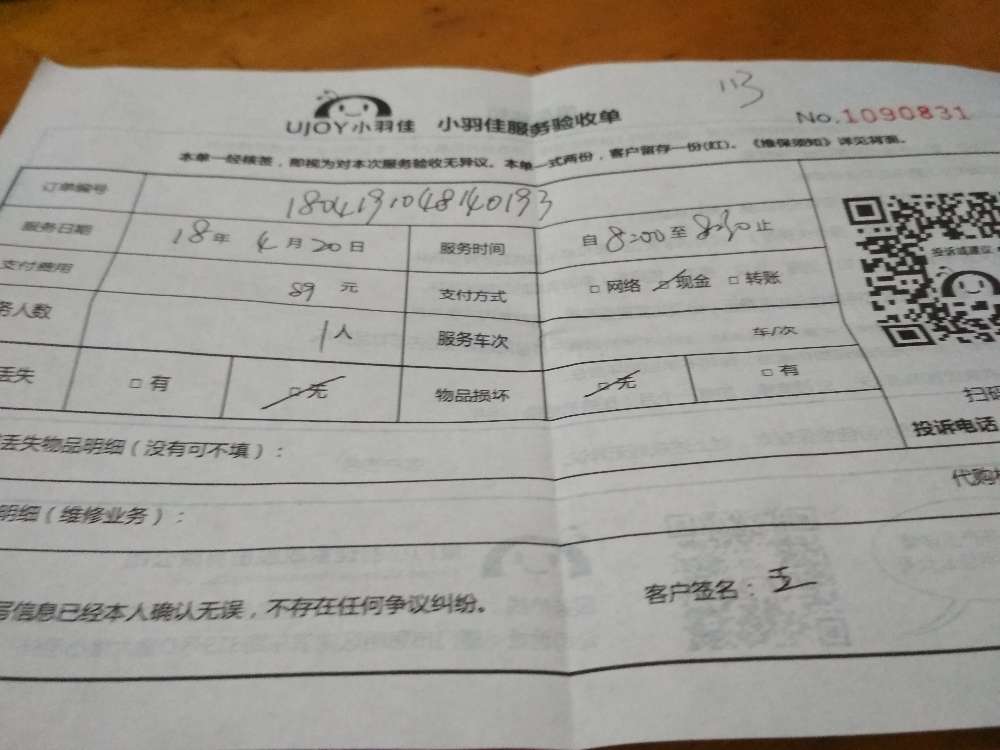 113
UJOY小羽佳 小羽佳服务验收单 No.1090831
本单一经核签，即视为对本次服务验收无异议。本单一式两份，客户留存一份(红)。《维保须知》详见背面。
订单编号 1804191048140193
服务日期 18年4月20日 服务时间 自8:00至8:30止
支付费用 89元 支付方式 □网络 □现金 □转账
务人数 1人 服务车次 车/次
丢失 □有 □无 物品损坏 □无 □有
投诉或建议
扫码
投诉电话
丢失物品明细（没有可不填）：
代购
明细（维修业务）：
写信息已经本人确认无误，不存在任何争议纠纷。 客户签名：王